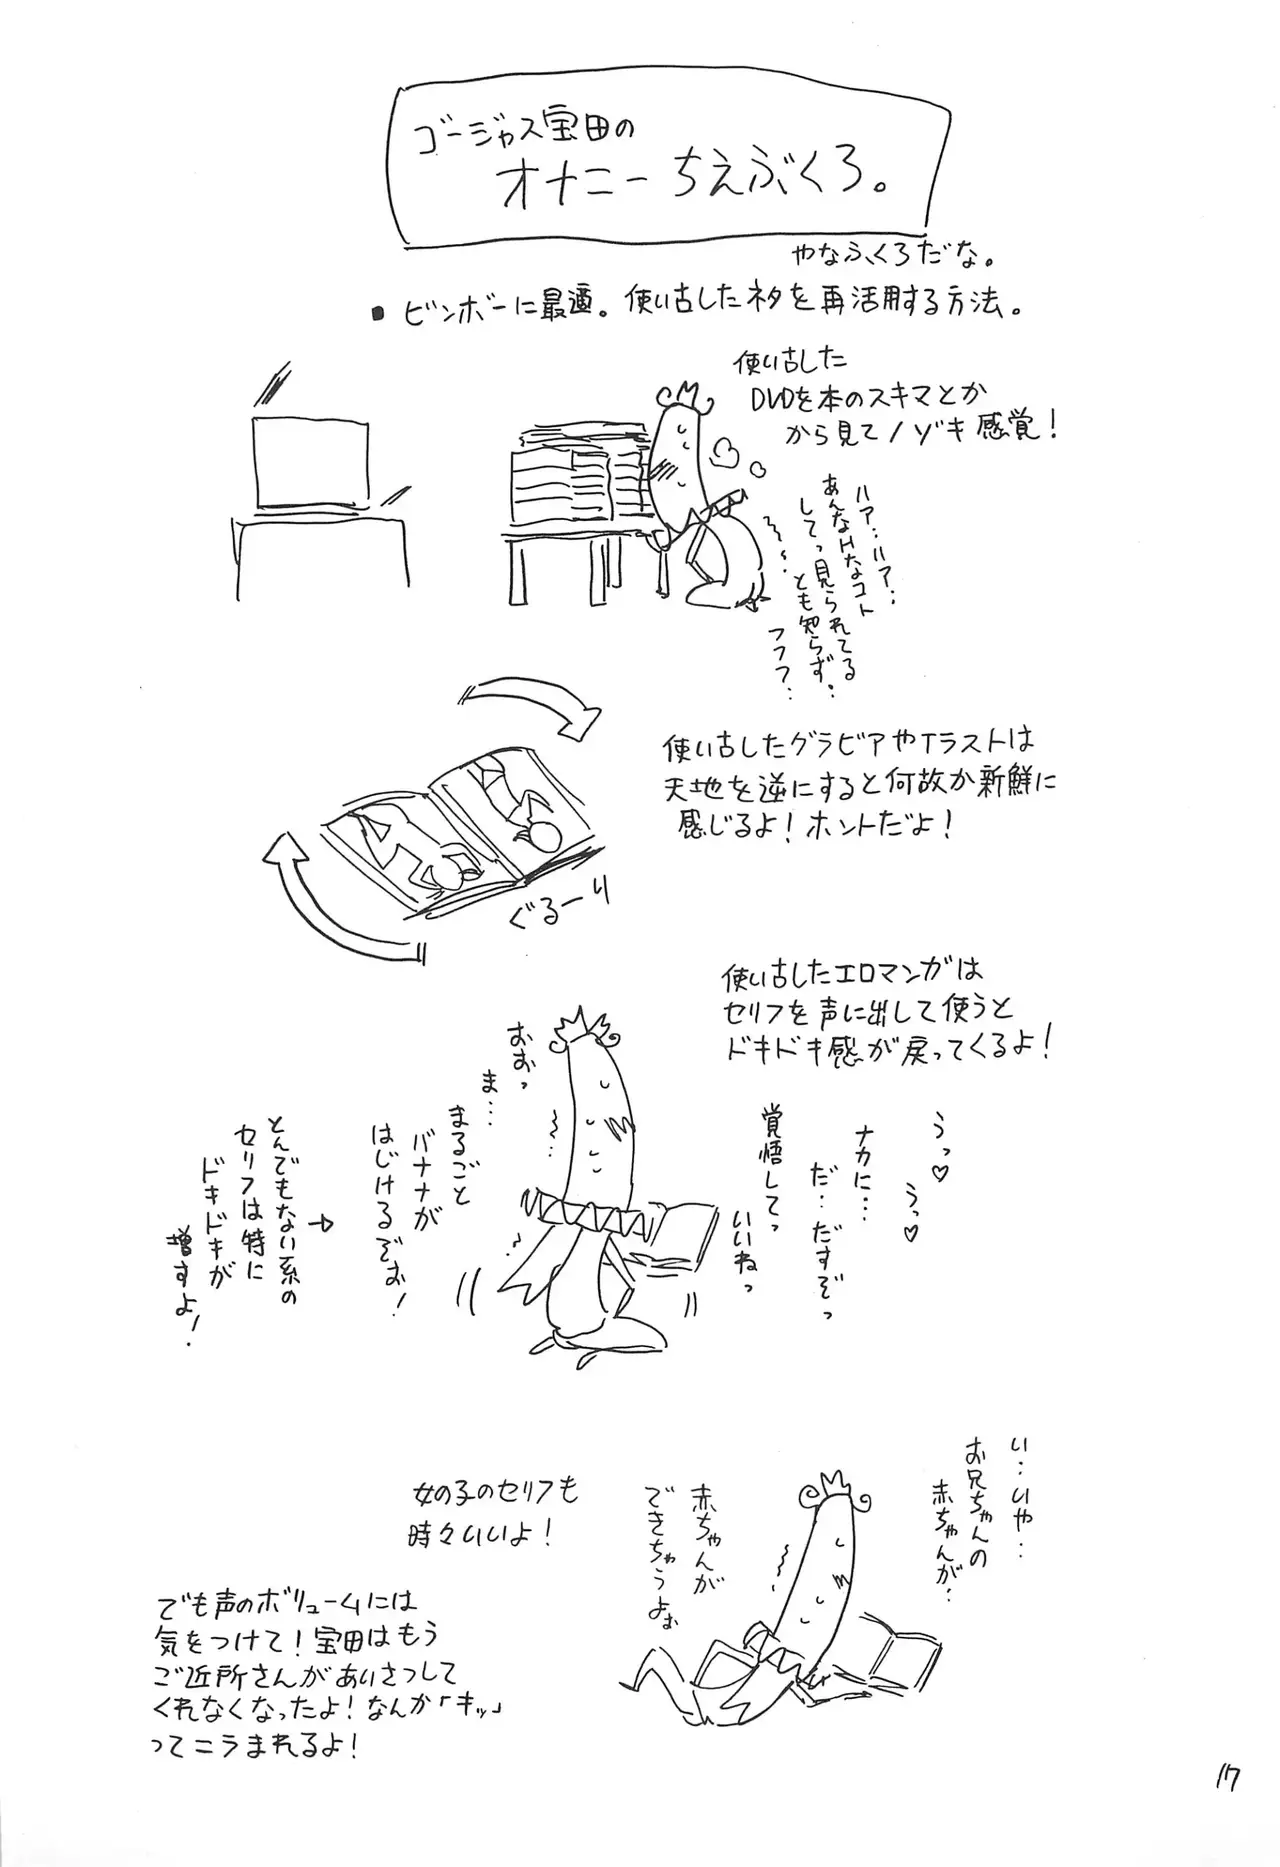 ゴージャス宝田の
オナニーちえぶくろ。
やなふくろだな。
■ビンボーに最適。使い古したネタを再活用する方法。
使い古した
DVDを本のスキマとか
から見てノゾキ感覚！
ハァ…ハァ…
あんなHなコト
してっ見られてる
とも知らず。
フフフ…
使い古したグラビアやイラストは
天地を逆にすると何故か新鮮に
感じるよ！ホントだよ！
ぐるーり
使い古したエロマンガは
セリフを声に出して使うと
ドキドキ感が戻ってくるよ！
うっ♡
うっ♡
ナカに…
だ…だすぞっ
覚悟してっ
いいねっ
おおっ
ま…
まるごと
バナナが
はじけるぞぉ！
→
とんでもない系の
セリフは特に
ドキドキが
増すよ！
い…いや…
お兄ちゃんの
赤ちゃんが…
赤ちゃんが
できちゃうよぉ
女の子のセリフも
時々いいよ！
でも声のボリュームには
気をつけて！宝田はもう
ご近所さんがあいさつして
くれなくなったよ！なんか「キッ」
ってニラまれるよ！
17